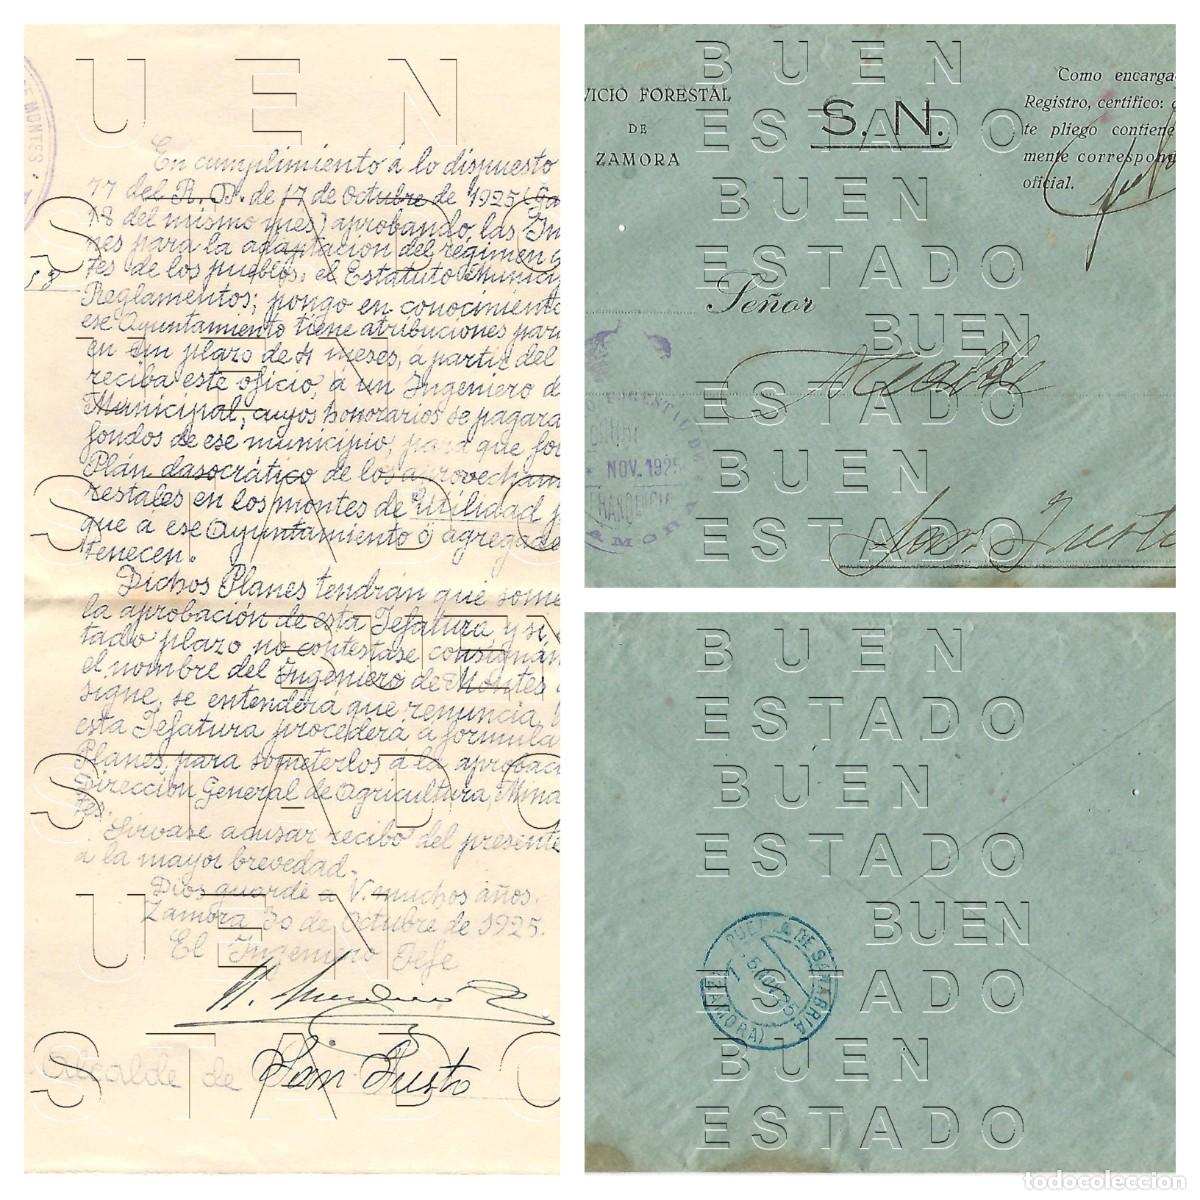 DE MONTES
En cumplimiento á lo dispuesto
77 del R. D. de 17 de Octubre de 1925 (Ga
18 del mismo mes) aprobando, las In
nes para la adaptación del régimen
tes de los pueblos, el Estatuto Munici
Reglamentos; pongo en conocimiento
ese Ayuntamiento tiene atribuciones para
en un plazo de 4 meses, á partir del
reciba este oficio, á un Ingeniero de
Municipal, cuyos honorarios se pagará
fondos de ese municipio, para que for
Plán dasocrático de los aprovecham
restales en los montes de Utilidad p
que a ese Ayuntamiento ó agregad
tenecen.
Dichos Planes tendrán que some
la aprobación de esta Jefatura, y si
tado plazo no contestase consignán
el nombre del Ingeniero de Montes
signe, se entenderá que renuncia,
esta Jefatura procederá á formula
Planes, para someterlos á la aprobac
Dirección General de Agricultura, Mina
tes.
Sirvase acusar recibo del presente
á la mayor brevedad.
Dios guarde á V. muchos años.
Zamora 30 de Octubre de 1925.
El Ingeniero Jefe
Alcalde de San Justo
VICIO FORESTAL
DE
ZAMORA
S. N.
Como encarga
Registro, certifico:
te pliego contiene
mente correspon
oficial.
Señor
Alcalde
San Justo
NOV. 1925
FRANQUICIA
ZAMORA
PUEBLA DE SANABRIA
(ZAMORA)
UEN
STADO
UEN
STADO
UEN
STADO
UEN
STADO
UEN
STADO
BUEN
ESTADO
BUEN
ESTADO
BUEN
ESTADO
BUEN
ESTADO
BUEN
ESTADO
BUEN
ESTADO
BUEN
ESTADO
BUEN
ESTADO
todocoleccion